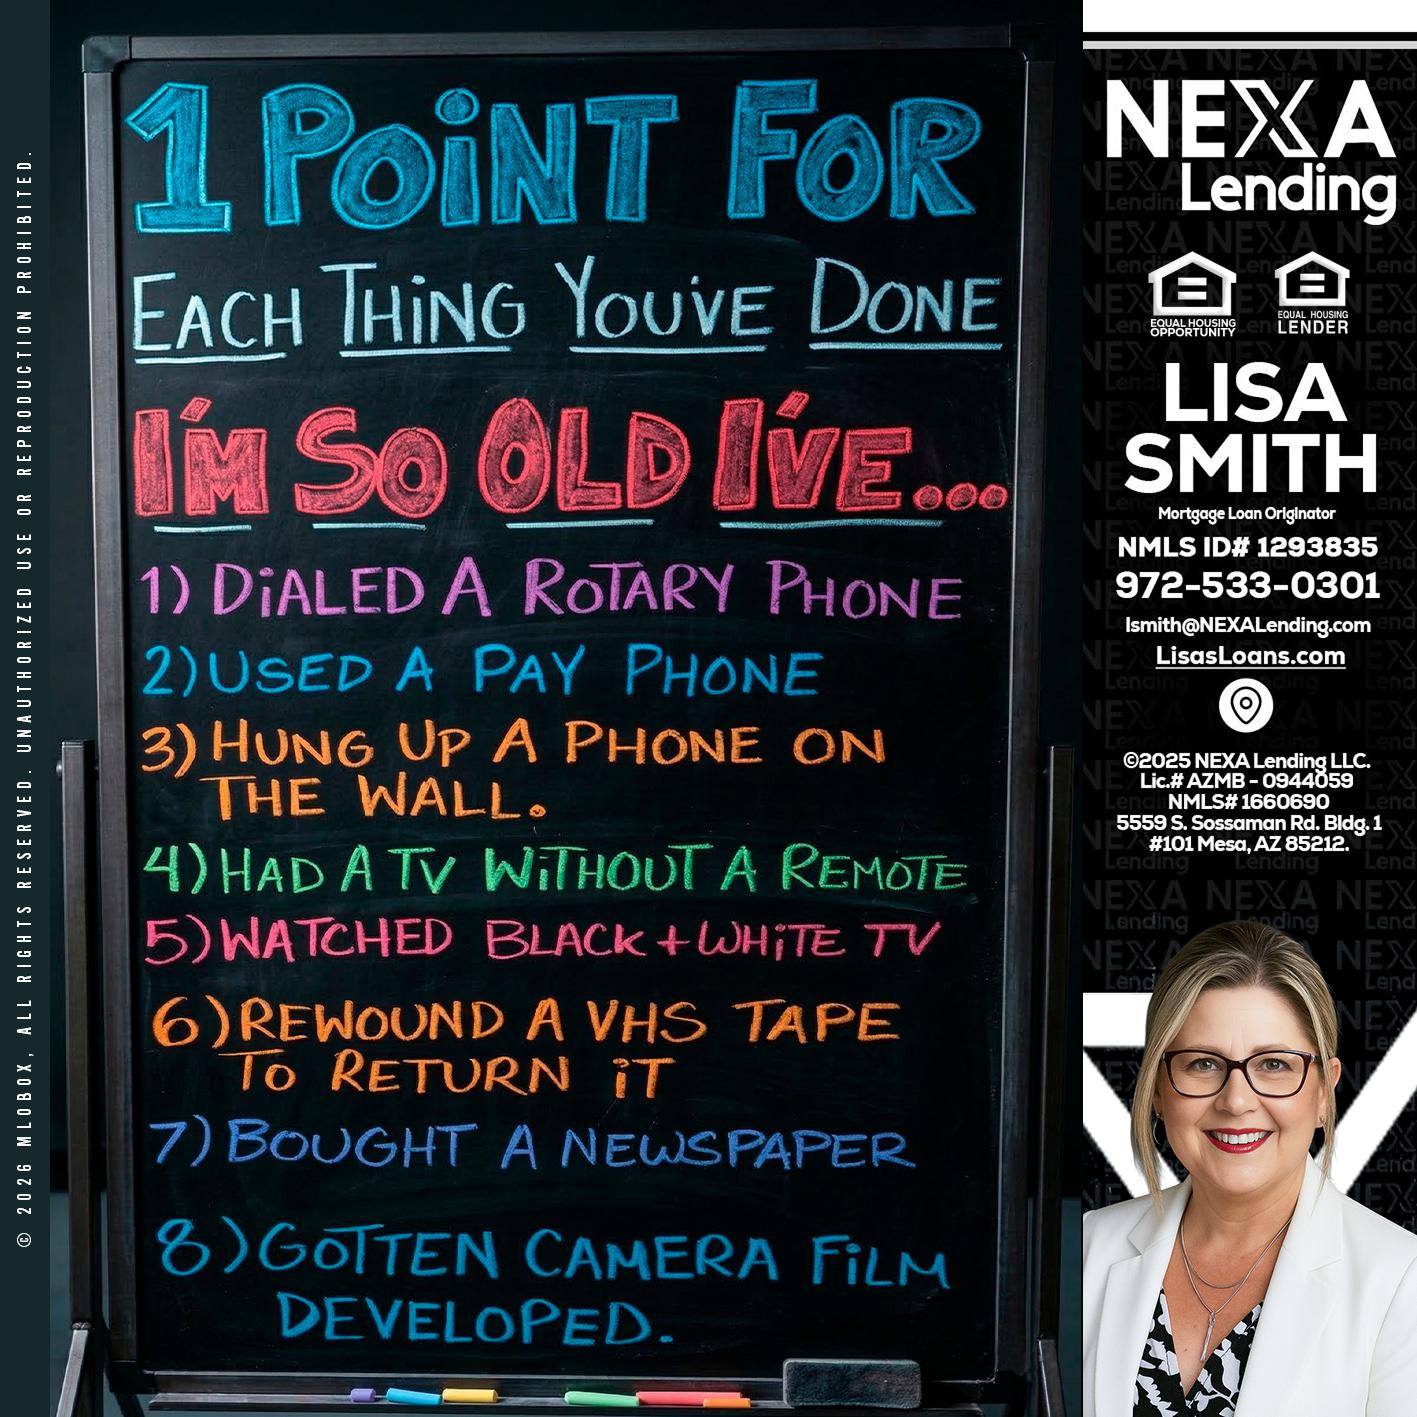 © 2026 MLOBOX, ALL RIGHTS RESERVED. UNAUTHORIZED USE OR REPRODUCTION PROHIBITED.
1 POiNT FOR
EACH THiNG YOU'VE DONE
I'M SO OLD I'VE...
1) DiALED A ROTARY PHONE
2) USED A PAY PHONE
3) HUNG UP A PHONE ON
THE WALL.
4) HAD A TV WiTHOUT A REMOTE
5) WATCHED BLACK + WHiTE TV
6) REWOUND A VHS TAPE
TO RETURN iT
7) BOUGHT A NEWSPAPER
8) GOTTEN CAMERA FiLM
DEVELOPED.
NEXA
Lending
EQUAL HOUSING
OPPORTUNITY
EQUAL HOUSING
LENDER
LISA
SMITH
Mortgage Loan Originator
NMLS ID# 1293835
972-533-0301
lsmith@NEXALending.com
LisasLoans.com
©2025 NEXA Lending LLC.
Lic.# AZMB - 0944059
NMLS# 1660690
5559 S. Sossaman Rd. Bldg. 1
#101 Mesa, AZ 85212.